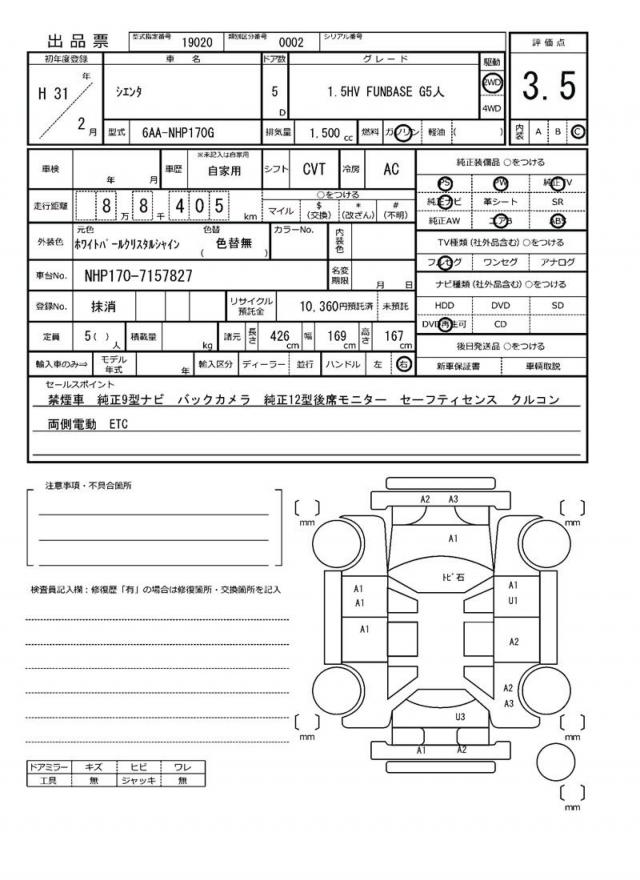 出品票 型式指定番号 19020 類別区分番号 0002 シリアル番号
初年度登録 車 名 ドア数 グレード 駆動 評価点
H 31 年 2 月 シエンタ 5 D 1.5HV FUNBASE G5人 2WD 4WD 3.5
型式 6AA-NHP170G 排気量 1.500 cc 燃料 ガソリン 軽油 ( ) 内装 A B C
車検 年 月 車歴 ※未記入は自家用 自家用 シフト CVT 冷房 AC
走行距離 8 万 8 千 4 0 5 km ○をつける マイル $ (交換) * (改ざん) # (不明)
外装色 元色 ホワイトパールクリスタルシャイン 色替 ( 色替無 ) カラーNo. 内装色
車台No. NHP170-7157827 名変期限 月 日
登録No. 抹消 リサイクル預託金 10,360円預託済 未預託
定員 5( ) 人 積載量 kg 諸元 長さ 426 cm 幅 169 cm 高さ 167 cm
輸入車のみ⇒ モデル年式 年 輸入区分 ディーラー 並行 ハンドル 左 右
純正装備品 ○をつける
PS PW 純正TV
純正ナビ 革シート SR
純正AW エアB ABS
TV種類(社外品含む)○をつける
フルセグ ワンセグ アナログ
ナビ種類(社外品含む)○をつける
HDD DVD SD
DVD再生可 CD
後日発送品 ○をつける
新車保証書 車輌取説
セールスポイント
禁煙車 純正9型ナビ バックカメラ 純正12型後席モニター セーフティセンス クルコン
両側電動 ETC
注意事項・不具合箇所
検査員記入欄:修復歴「有」の場合は修復箇所・交換箇所を記入
A2 A3
mm mm
A1
トビ石
A1 A1
A1 U1
A1 A2
A2
A3
U3
mm mm
A1 A2
mm
ドアミラー キズ ヒビ ワレ
工具 無 ジャッキ 無